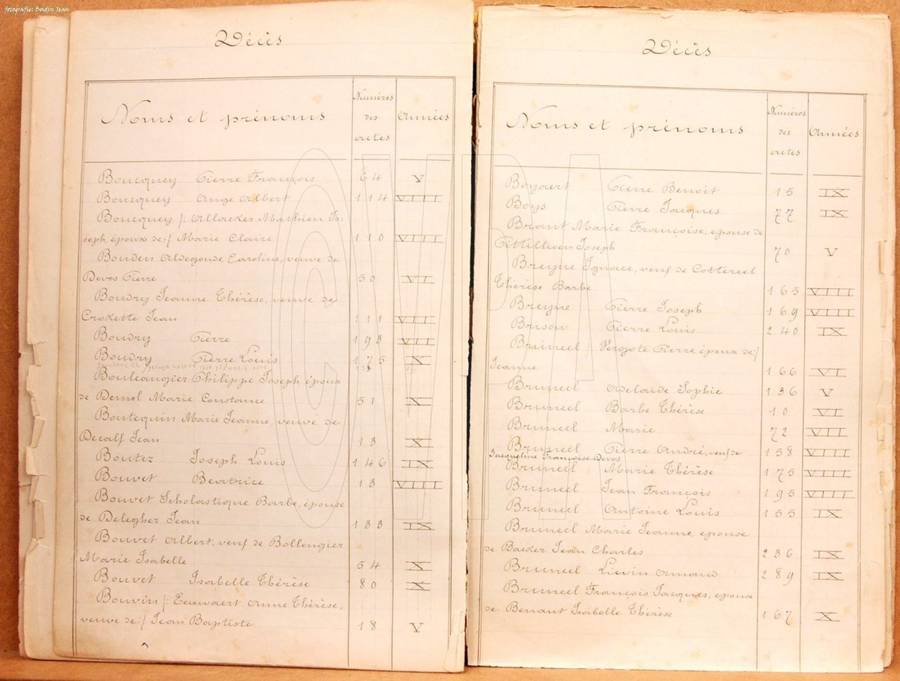 fotografie: Boudin Jean
Décès
Noms et prénoms
Numéros des actes
Années
Boucquey Pierre François 64 V
Boucquey Ange Albert 114 VIII
Boucquey / Allacker Mathieu Jo-
seph, époux de / Marie Claire 110 VIII
Bouden Aldegonde Caroline, veuve de
Devos Pierre 50 VI
Boudry Jeanne Thérèse, veuve de
Jean 111 VII
Boudry Pierre 193 VII
Boudry Pierre Louis 175 X
Philippe Joseph époux
de Marie Constance 51
Boutequin Marie Jeanne veuve de
Decalf Jean 13
Boutez Joseph Louis 146 IX
Bouvet Béatrice 13 VIII
Bouvet Scholastique Barbe, épouse
de Delegher Jean 133 IX
Bouvet Albert, veuf de Bollengier
Marie Isabelle 54 X
Bouvet Isabelle Thérèse 80
Bouvin / Anne Thérèse,
veuve de / Jean Baptiste 18 V
Décès
Noms et prénoms
Numéros des actes
Années
Pierre Benoit 15 IX
Boys Pierre Jacques 77 IX
Marie Françoise, épouse de
Joseph 70 V
Breyne Ignace, veuf de Cottereel
Thérèse Barbe 165 VIII
Breyne Pierre Joseph 169 VIII
Pierre Louis 240 IX
Pierre époux de /
Jeanne 166 VI
Bruneel Adelaïde Sophie 136 V
Bruneel Barbe Thérèse 10 VI
Bruneel Marie 72 VII
Bruneel Pierre André, veuf de 158 VIII
Jacqueline Françoise Devos
Bruneel Marie Thérèse 175 VIII
Bruneel Jean François 195 VIII
Bruneel Antoine Louis 155 IX
Bruneel Marie Jeanne épouse
de Jean Charles 236 IX
Bruneel Liévin Amand 289 IX
Bruneel François Jacques, époux
de Benaut Isabelle Thérèse 167 X